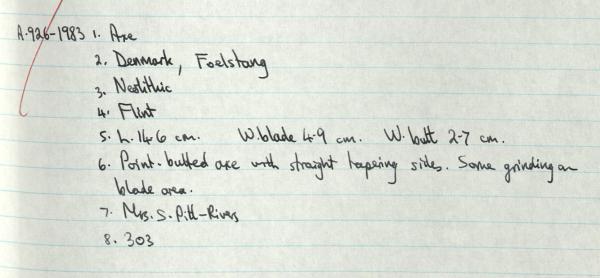 A.926-1983 1. Axe
2. Denmark, Foelstang
3. Neolithic
4. Flint
5. L. 14.6 cm. W. blade 4.9 cm. W. butt 2.7 cm.
6. Point-butted axe with straight tapering sides. Some grinding on
blade area.
7. Mrs. S. Pitt-Rivers
8. 303